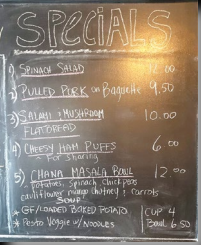 SPECIALS
1) SPINACH SALAD 12.00
2) PULLED PORK on Baguette 9.50
3) SALAMI & MUSHROOM 10.00
FLATBREAD
4) CHEESY HAM PUFFS 6.00
- For Sharing
5) CHANA MASALA BOWL 12.00
- potatoes, spinach, chick peas
cauliflower, mango chutney & carrots
SOUP
* GF/LOADED BAKED POTATO CUP 4
* Pesto Veggie w/ NOODLES Bowl 6.50